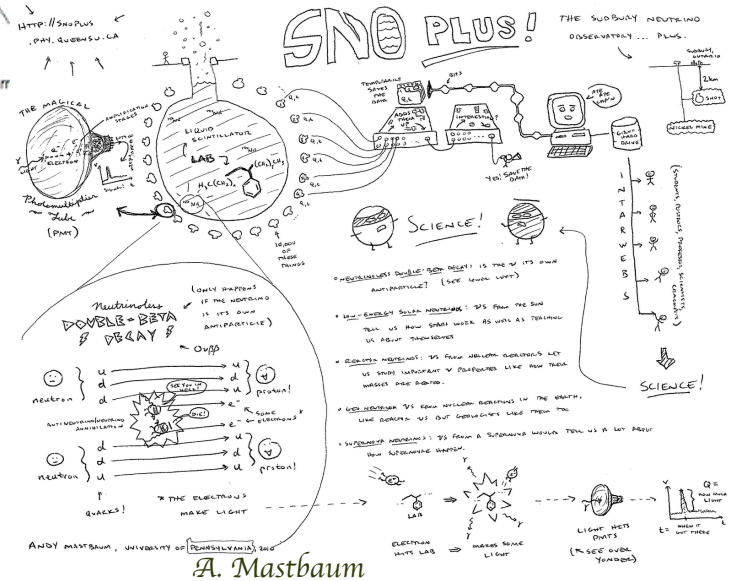 HTTP://SNOPLUS
.PHY.QUEENSU.CA
SNO PLUS!
THE SUDBURY NEUTRINO
OBSERVATORY... PLUS.
SUDBURY,
ONTARIO
2km
SNO+
NICKEL MINE
THE MAGICAL
AMPLIFICATION
STAGES
LIGHT
e-
ELECTRON
SIGNAL!
Photomultiplier
Tube
(PMT)
LIQUID
SCINTILLATOR
LAB
H3C(CH2)x
(CH2)yCH3
150Nd
Q,t
10,000
OF
THESE
THINGS
TEMPORARILY
SAVES
THE DATA
Q,t
ADDS
THEM
UP
BITS
INTERESTING?
YES! SAVE THE
DATA!
GIANT
HARD
DRIVE
INTARWEBS
(STUDENTS, POSTDOCS, PROFESSORS, SCIENTISTS,
SCIENCE!
SCIENCE!
• NEUTRINOLESS DOUBLE-BETA DECAY: IS THE ν ITS OWN
ANTIPARTICLE? (SEE LOWER LEFT)
• LOW-ENERGY SOLAR NEUTRINOS: ν'S FROM THE SUN
TELL US HOW STARS WORK AS WELL AS TEACHING
US ABOUT THEMSELVES
• REACTOR NEUTRINOS: ν'S FROM NUCLEAR REACTORS LET
US STUDY IMPORTANT ν PROPERTIES LIKE HOW THEIR
MASSES ARE RELATED.
• GEO NEUTRINOS: ν'S FROM NUCLEAR REACTIONS IN THE EARTH,
LIKE REACTOR ν'S BUT GEOLOGISTS LIKE THEM TOO
• SUPERNOVA NEUTRINOS: ν'S FROM A SUPERNOVA WOULD TELL US A LOT ABOUT
HOW SUPERNOVAE HAPPEN.
Neutrinoless
DOUBLE-BETA
DECAY
(ONLY HAPPENS
IF THE NEUTRINO
IS ITS OWN
ANTIPARTICLE)
0νββ
neutron
u
d
d
u
d
u
proton!
SEE YOU IN
HELL!
DIE!
e-
e-
SOME
ELECTRONS*
ANTINEUTRINO/NEUTRINO
ANNIHILATION
neutron
d
d
u
u
d
u
proton!
QUARKS!
* THE ELECTRONS
MAKE LIGHT
LAB
ELECTRON
HITS LAB ⇒ MAKES SOME
LIGHT
LIGHT HITS
PMTS
(SEE OVER
YONDER)
V
t
Q =
HOW MUCH
LIGHT
t = WHEN IT
GOT THERE
ANDY MASTBAUM, UNIVERSITY OF PENNSYLVANIA, 2010
A. Mastbaum